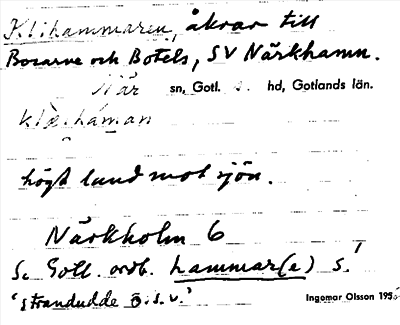 Klihammaren, åkrar till
Bosarve och Botels, SV Närkhamn.
När sn, Gotl. s. hd, Gotlands län.
högt land mot sjön.
Närkholm 6
Se Gotl. ordb. hammar(e) s.
'strandudde o.s.v.'
Ingemar Olsson 195